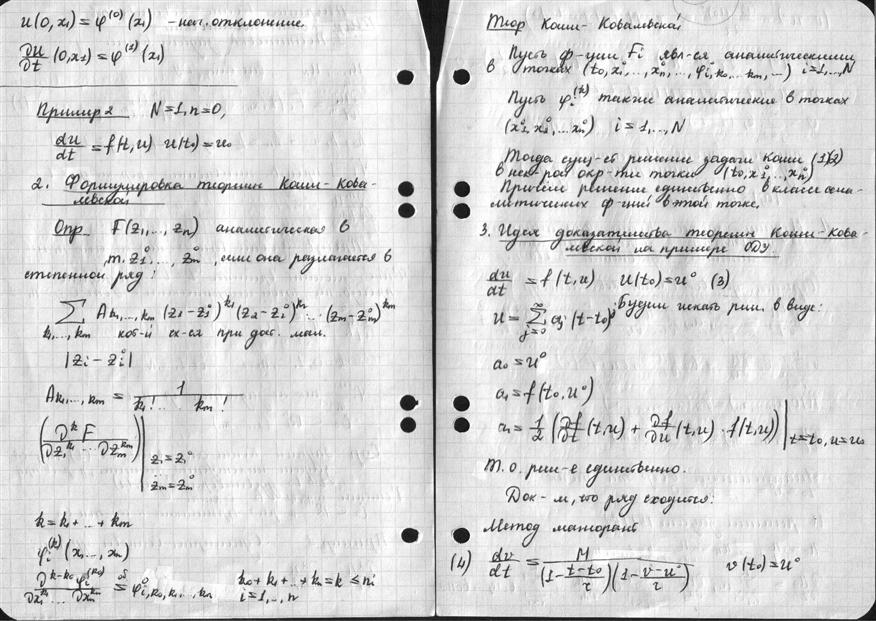 u(0, x₁) = φ⁽⁰⁾(x₁) - нач. отклонение.
∂u/∂t (0, x₁) = φ⁽¹⁾(x₁)
Пример 2 N=1, n=0,
du/dt = f(t, u) u(t₀) = u₀
2. Формулировка теоремы Коши-Кова-
левской
Опр F(z₁, ..., zₙ) аналитическая в
т. z₁⁰, ..., zₘ⁰, если она разлагается в
степенной ряд:
∑ A k₁,...,kₘ (z₁-z₁⁰)^k₁ (z₂-z₂⁰)^k₂ ... (zₘ-zₘ⁰)^kₘ
k₁,...,kₘ кот-й сх-ся при дост. мал.
|zᵢ - zᵢ⁰|
A k₁,...,kₘ = 1/(k₁! ... kₘ!)
(∂ᵏF/(∂z₁^k₁ ... ∂zₘ^kₘ))| z₁=z₁⁰
zₘ=zₘ⁰
k = k₁ + ... + kₘ
φᵢ⁽ᵏ⁾(x₁, ..., xₙ)
k₀ + k₁ + ... + kₙ = k ≤ nᵢ
i = 1, ..., n
Теор Коши-Ковалевской
Пусть ф-ции Fᵢ явл-ся аналитическими
в точках (t₀, x₁⁰, ..., xₙ⁰, ..., φ⁰ᵢ,k₀...kₘ, ...) i=1,...,N
Пусть φᵢ⁽ᵏ⁾ также аналитические в точках
(x₁⁰, x₂⁰, ... xₙ⁰) i=1,...,N
Тогда сущ-ет решение задачи Коши (1)(2)
в нек-рой окр-ти точки (t₀, x₁⁰, ..., xₙ⁰)
Причём решение единственно в классе ана-
литических ф-ций в этой точке.
3. Идея доказательства теоремы Коши-Кова-
левской на примере ОДУ
du/dt = f(t, u) u(t₀) = u⁰ (3)
Будем искать реш. в виде:
u = ∑_{j=0}^∞ aⱼ (t-t₀)ʲ
a₀ = u⁰
a₁ = f(t₀, u⁰)
a₂ = 1/2 (∂f/∂t (t, u) + ∂f/∂u (t, u) · f(t, u))| t=t₀, u=u₀
Т. о. реш-е единственно.
Док-м, что ряд сходится:
Метод мажорант
(4) dv/dt = M/((1 - (t-t₀)/r)(1 - (v-u⁰)/r)) v(t₀) = u⁰